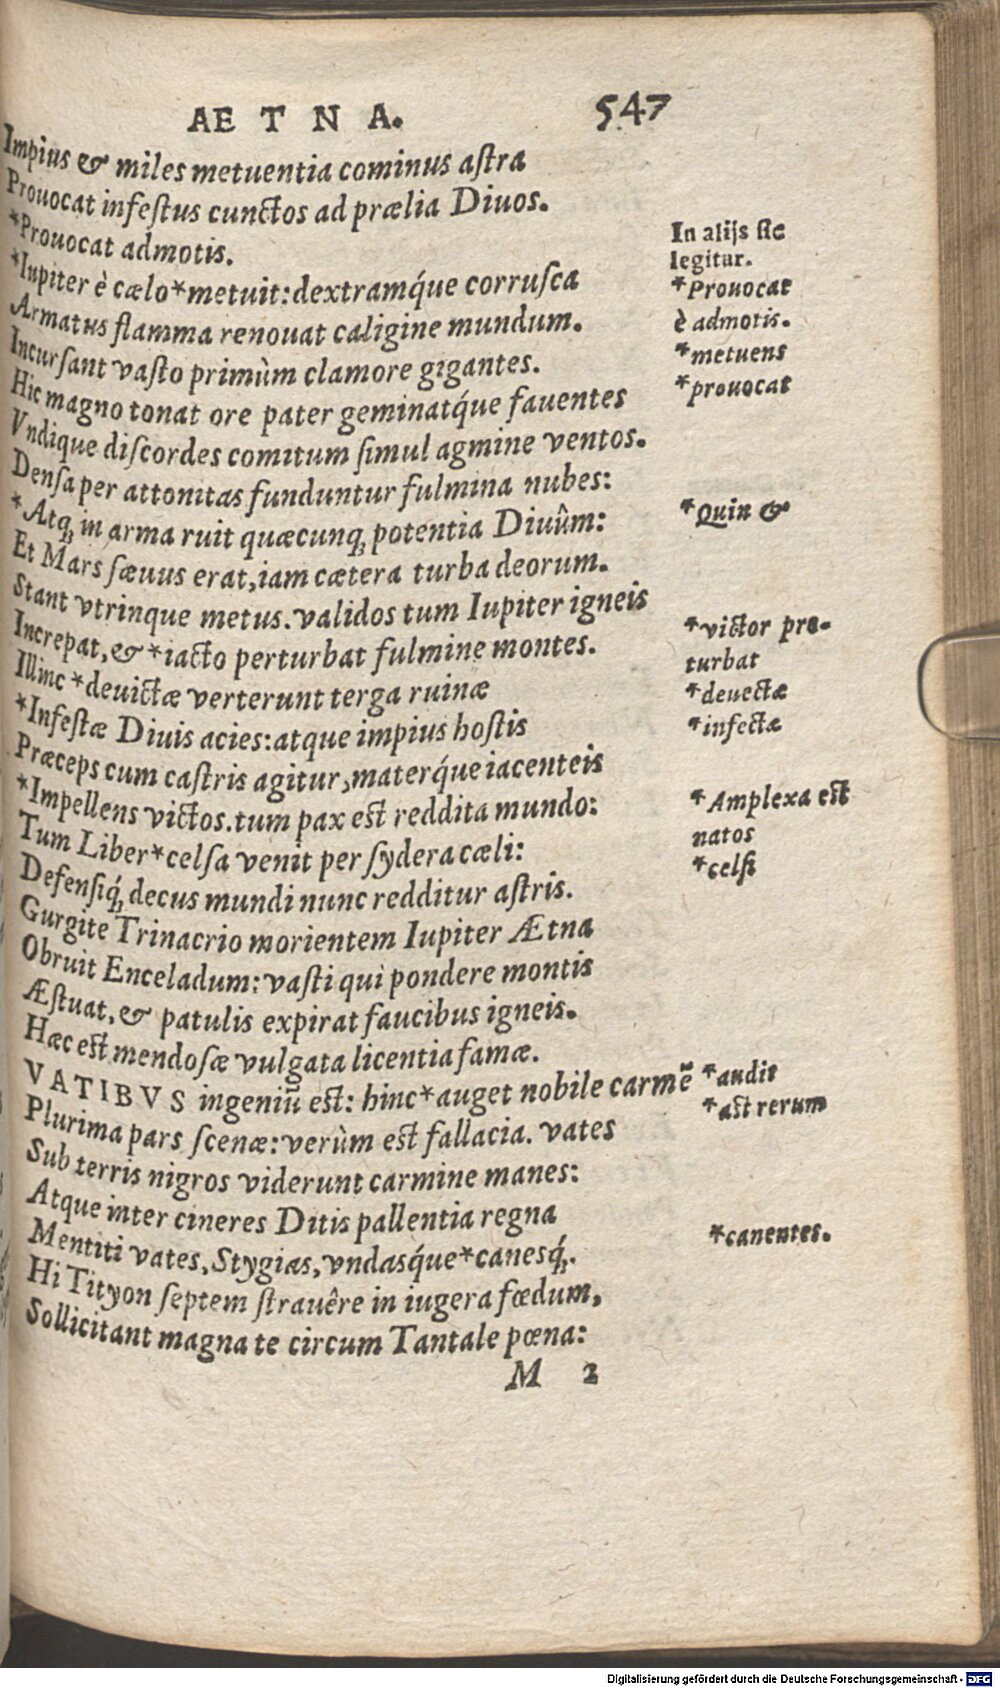 AETNA. 547
Impius & miles metuentia cominus aſtra
Prouocat infeſtus cunctos ad prælia Diuos.
*Prouocat admotis.
*Iupiter è cælo*metuit: dextramq́ue corruſca
Armatus flamma renouat caligine mundum.
Incurſant vaſto primùm clamore gigantes.
Hic magno tonat ore pater geminatq́ue fauentes
Vndique diſcordes comitum ſimul agmine ventos.
Denſa per attonitas funduntur fulmina nubes:
*Atq; in arma ruit quæcunq; potentia Diuûm:
Et Mars ſæuus erat, iam cætera turba deorum.
Stant vtrinque metus. validos tum Iupiter igneis
Increpat, & *iacto perturbat fulmine montes.
Illinc *deuictæ verterunt terga ruinæ
*Infeſtæ Diuis acies: atque impius hoſtis
Præceps cum caſtris agitur, materq́ue iacenteis
*Impellens victos. tum pax eſt reddita mundo:
Tum Liber*celſa venit per ſydera cæli:
Defenſiq́; decus mundi nunc redditur aſtris.
Gurgite Trinacrio morientem Iupiter Ætna
Obruit Enceladum: vaſti qui pondere montis
Æſtuat, & patulis expirat faucibus igneis.
Hæc eſt mendoſæ vulgata licentia famæ.
VATIBVS ingeniū eſt: hinc*auget nobile carmē
Plurima pars ſcenæ: verùm eſt fallacia. vates
Sub terris nigros viderunt carmine manes:
Atque inter cineres Ditis pallentia regna
Mentiti vates, Stygias, vndasq́ue*canesq́;.
Hi Tityon ſeptem ſtrauêre in iugera fœdum,
Sollicitant magna te circum Tantale pœna:
M 2
In alijs ſic
legitur.
*Prouocat
è admotis.
*metuens
*prouocat
*Quin &
*victor pro-
turbat
*deuectæ
*infectæ
*Amplexa eſt
natos
*celſi
*audit
*aſt rerum
*canentes.
Digitalisierung gefördert durch die Deutsche Forschungsgemeinschaft - DFG